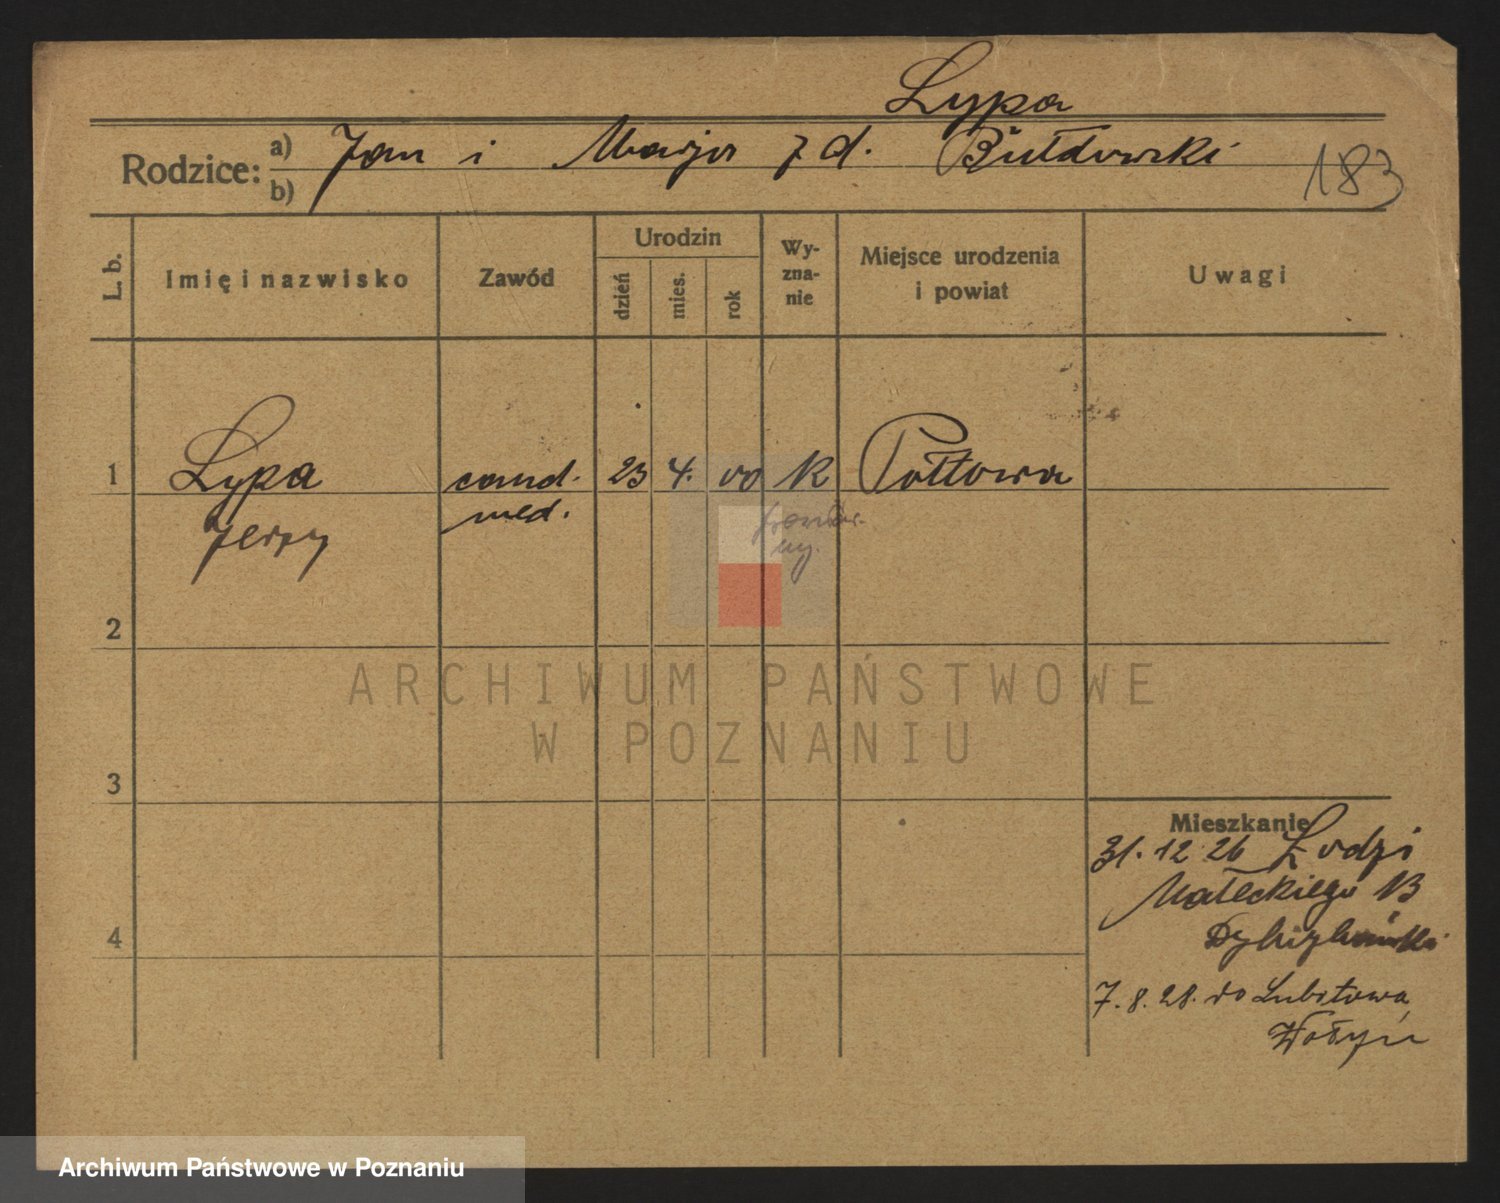 Lypa
Rodzice: a) Jan i Marja z d. Bułdowski
b)
183
L. b. Imię i nazwisko Zawód Urodzin dzień mies. rok Wy-zna-nie Miejsce urodzenia i powiat Uwagi
1 Lypa cand. 23 4. 00 K Połtowa
Jerzy med.
2
ARCHIWUM PAŃSTWOWE
W POZNANIU
3
Mieszkanie
31.12 26 Łodzi
Małeckiego 13
4
7.8.28. do Lubitowa
Wołyń
Archiwum Państwowe w Poznaniu